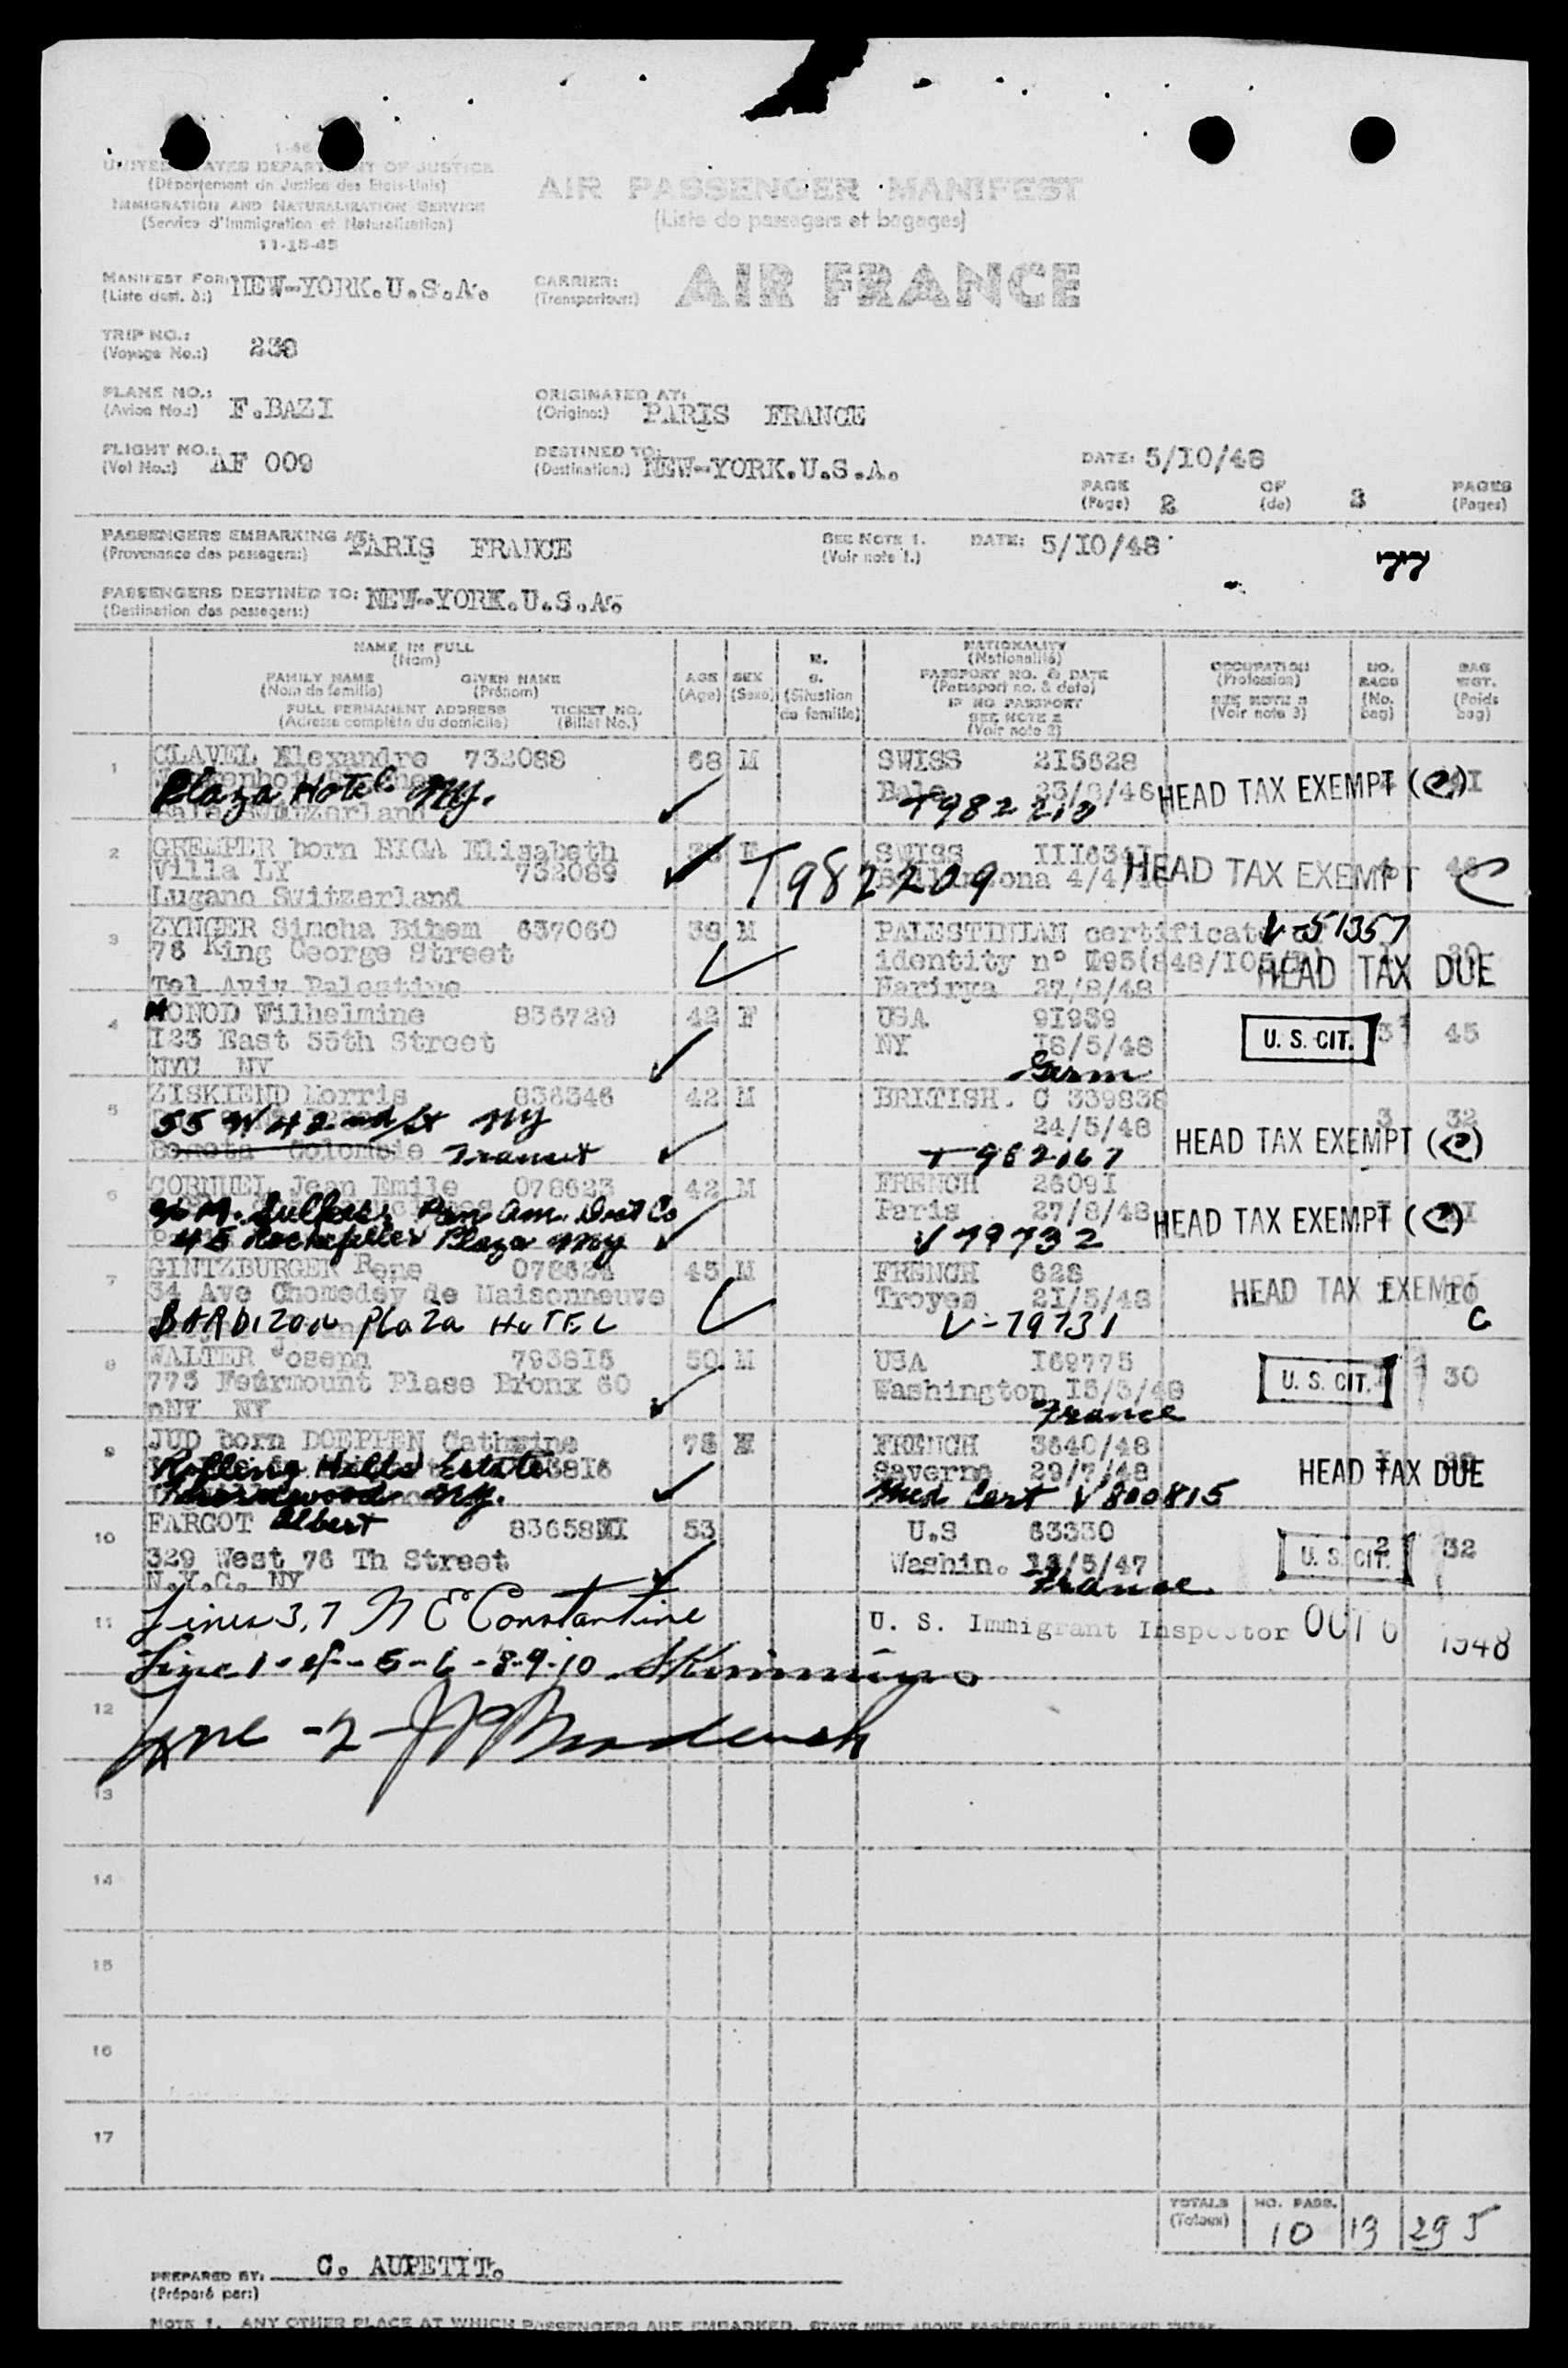 1-466
UNITED STATES DEPARTMENT OF JUSTICE
(Département de Justice des Etats-Unis)
IMMIGRATION AND NATURALIZATION SERVICE
(Service d'Immigration et Naturalisation)
11-15-45
AIR PASSENGER MANIFEST
(Liste de passagers et bagages)
MANIFEST FOR: NEW-YORK.U.S.A.
(Liste dest. à:)
CARRIER: AIR FRANCE
(Transporteur:)
TRIP NO.: 238
(Voyage No.:)
PLANE NO.: F.BAZI
(Avion No.:)
ORIGINATED AT: PARIS FRANCE
(Origine:)
FLIGHT NO.: AF 009
(Vol No.:)
DESTINED TO: NEW-YORK.U.S.A.
(Destination:)
DATE: 5/10/48
PAGE 2 OF 3 PAGES
(Page) (de) (Pages)
PASSENGERS EMBARKING AT: PARIS FRANCE
(Provenance des passagers:)
SEE NOTE 1. DATE: 5/10/48
(Voir note 1.)
77
PASSENGERS DESTINED TO: NEW-YORK.U.S.A.
(Destination des passagers:)
NAME IN FULL
(Nom)
FAMILY NAME GIVEN NAME
(Nom de famille) (Prénom)
FULL PERMANENT ADDRESS TICKET NO.
(Adresse complète du domicile) (Billet No.)
AGE
(Age)
SEX
(Sexe)
M.
S.
(Situation
de famille)
NATIONALITY
(Nationalité)
PASSPORT NO. & DATE
(Passeport no. & date)
IF NO PASSPORT
SEE NOTE 2
(Voir note 2)
OCCUPATION
(Profession)
SEE NOTE 3
(Voir note 3)
NO.
BAGS
(No.
bag)
BAG
WGT.
(Poids
bag)
1 CLAVEL Elexandre 732088 68 M SWISS 215628
Plaza Hotel NY. Bale 23/8/46 HEAD TAX EXEMPT (C)
Bale Switzerland T982210
2 GREMPER born RIGA Elisabeth 38 F SWISS
Villa LY 732089 T982209 4/4/48 HEAD TAX EXEMPT C
Lugano Switzerland
3 ZYNGER Simcha Binem 637060 39 M PALESTINIAN certificate V-51357
78 King George Street identity n° HEAD TAX DUE 30
Tel Aviv Palestine Nariyya 27/8/48
4 MONOD Wilhelmine 836729 42 F USA 91939
123 East 55th Street NY 18/5/48 U. S. CIT. 3 45
NYC NY Germ
5 ZISKIEND Morris 836346 42 M BRITISH. C 339838
55 W 42nd St NY 24/5/48 3 32
Bogota Colombie Transit T982167 HEAD TAX EXEMPT (C)
6 CORNUEL Jean Emile 078623 42 M FRENCH 26091
Pan Am. Paris 27/8/48 HEAD TAX EXEMPT (C)
45 Rockefeller Plaza NY V79732
7 GINTZBURGER Rene 078624 45 M FRENCH 628
34 Ave Chomedey de Maisonneuve Troyes 21/5/48 HEAD TAX EXEMPT 10
BARDIZON PLaZa HoTEL V-79731 C
8 WALTER Joseph 793815 50 M USA 169775
775 Fearmount Plase Bronx 60 Washington 18/5/48 U. S. CIT. 30
nNY NY France
9 JUD born DOEPPEN Cathrine 78 FRENCH 3640/48
Rolling Hills Estate Saverne 29/7/48 HEAD TAX DUE
Thornwood NY. Med Cert V800815
10 FARGOT Albert 53 U.S 63330
329 West 76 Th Street Washin. /5/47 U. S. CIT. 2 32
N.Y.C. NY France
11 Lines 3,7 N E Constantine U. S. Immigrant Inspector OCT 6 1948
Line 1-4-5-6-8-9-10
12 Line -2-
13
14
15
16
17
TOTALS NO. PASS.
(Totaux) 10 13 295
PREPARED BY: C. AUPETIT.
(Préparé par:)
NOTE 1. ANY OTHER PLACE AT WHICH PASSENGERS ARE EMBARKED,